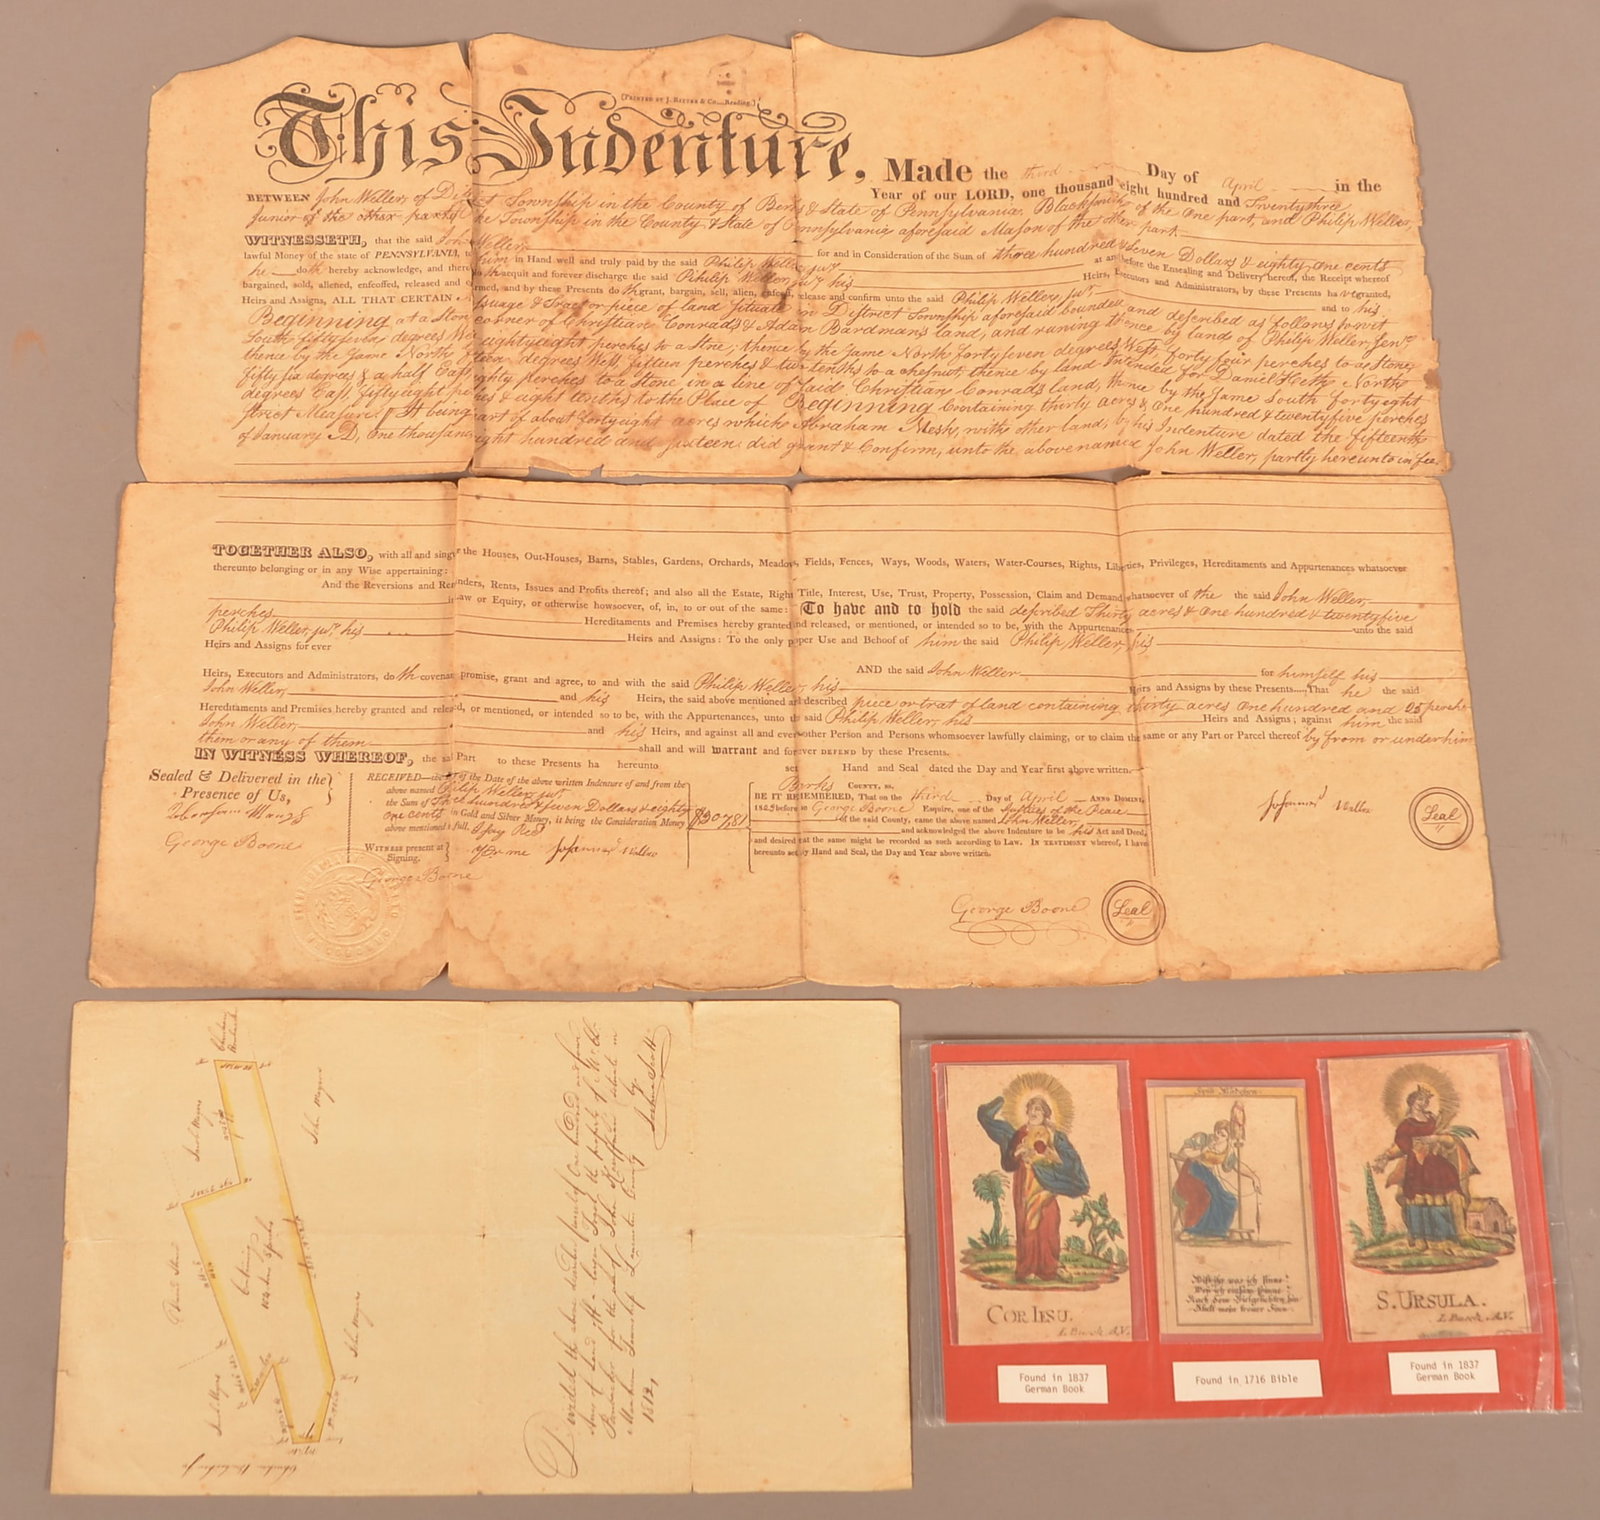 [Printed by J. Ritter & Co....Reading.]
This Indenture, Made the third Day of April in the
Year of our LORD, one thousand eight hundred and Twentythree
BETWEEN John Weller, of District Township in the County of Berks & State of Pennsylvania Blacksmith of the One part, and Philip Weller,
Junior of the other part of the Township in the County & State of Pennsylvania aforesaid Mason of the other part.
WITNESSETH, that the said John Weller, for and in Consideration of the Sum of three hundred & seven Dollars & eighty one cents
lawful Money of the state of PENNSYLVANIA, to him in Hand well and truly paid by the said Philip Weller jur. at and before the Ensealing and Delivery hereof, the Receipt whereof
he doth hereby acknowledge, and there acquit and forever discharge the said Philip Weller, jur. his Heirs, Executors and Administrators, by these Presents ha ve granted,
bargained, sold, aliened, enfeoffed, released and confirmed, and by these Presents doth grant, bargain, sell, alien, enfeoff, release and confirm unto the said Philip Weller, jur. and to his
Heirs and Assigns, ALL THAT CERTAIN Messuage & Tract or piece of land situate in District Township aforesaid bounded and described as follows to wit
Beginning at a Stone corner of Christian Conrad's & Adam Bardman's land, and runing thence by lands of Philip Weller, Senr.
South fiftyseven degrees West eightyeight perches to a Stone; thence by the same North fortyseven degrees West, fortyfour perches to a Stone,
thence by the same North fifteen degrees West, fifteen perches & two tenths to a chesnut, thence by land intended for Daniel Heth North
fiftysix degrees & a half East eighty perches to a Stone in a line of said Christian Conrads land, thence by the same South fortyeight
degrees East, fiftyeight perches & eight tenths to the Place of Beginning Containing thirty acres & One hundred & twentyfive perches
strict Measure. It being part of about fortyeight acres which Abraham Mesh, with other land, by his Indenture dated the fifteenth
of January A.D. One thousand eight hundred and sixteen did grant & Confirm, unto the abovenamed John Weller, partty hereunto in fee.
TOGETHER ALSO, with all and singular the Houses, Out-Houses, Barns, Stables, Gardens, Orchards, Meadows, Fields, Fences, Ways, Woods, Waters, Water-Courses, Rights, Liberties, Privileges, Hereditaments and Appurtenances whatsoever
thereunto belonging or in any Wise appertaining:
And the Reversions and Remainders, Rents, Issues and Profits thereof; and also all the Estate, Right Title, Interest, Use, Trust, Property, Possession, Claim and Demand whatsoever of the the said John Weller
in Law or Equity, or otherwise howsoever, of, in, to or out of the same: To have and to hold the said described Thirty acres & One hundred & twentyfive
perches Hereditaments and Premises hereby granted and released, or mentioned, or intended so to be, with the Appurtenances unto the said
Philip Weller, jur. his Heirs and Assigns: To the only proper Use and Behoof of him the said Philip Weller, his
Heirs and Assigns for ever
AND the said John Weller for himself his
Heirs, Executors and Administrators, doth covenant promise, grant and agree, to and with the said Philip Weller, his Heirs and Assigns by these Presents.....That he the said
John Weller, and his Heirs, the said above mentioned and described piece or trat of land containing thirty acres One hundred and 25 perches
Hereditaments and Premises hereby granted and released, or mentioned, or intended so to be, with the Appurtenances, unto the said Philip Weller, his Heirs and Assigns; against him the said
John Weller, and his Heirs, and against all and every other Person and Persons whomsoever lawfully claiming, or to claim the same or any Part or Parcel thereof by from or under him
them or any of them shall and will warrant and forever DEFEND by these Presents.
IN WITNESS WHEREOF, the said Part to these Presents ha hereunto set Hand and Seal dated the Day and Year first above written.
Sealed & Delivered in the
Presence of Us,
George Boone
RECEIVED the of the Date of the above written Indenture of and from the
above named Philip Weller, jur.
the Sum of Three hundred & seven Dollars & eighty
one cents in Gold and Silver Money, it being the Consideration Money
above mentioned in full. I say Recd
WITNESS present at
Signing.
per me Johannes Weller
George Boone
$307,81
Berks COUNTY, ss.
BE IT REMEMBERED, That on the third Day of April ANNO DOMINI,
1823 before me George Boone Esquire, one of the Justices of the Peace
of the said County, came the above named John Weller,
and acknowledged the above Indenture to be his Act and Deed,
and desired that the same might be recorded as such according to Law. IN TESTIMONY whereof, I have
hereunto set my Hand and Seal, the Day and Year above written.
George Boone
Seal
Johannes Weller
Seal
John Myers
John Myers
Saml Myers
Saml Myers
Containing
Divided the above described parcel of One hundred and four
Acres of land
by
Joshua Scott
1812,
COR IESU.
I. Busch. A.V.
Spiñ Mädchen.
Wißt ihr was ich sinne?
Wen ich einsam spinne
Nach dem Vielgeliebten hin
Steht mein treuer Sinn.
S. URSULA.
I. Busch. A.V.
Found in 1837
German Book
Found in 1716 Bible
Found in 1837
German Book